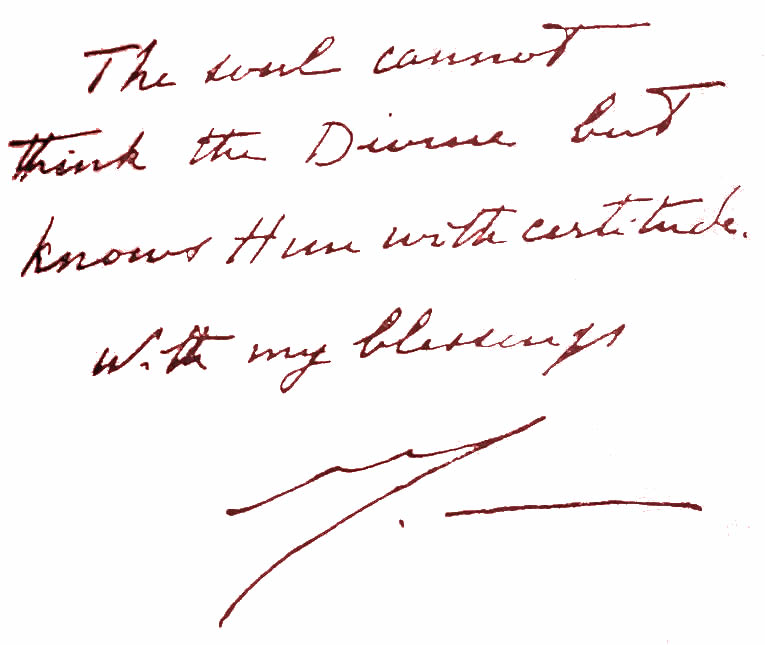 The soul cannot
think the Divine but
knows Him with certitude.
With my blessings